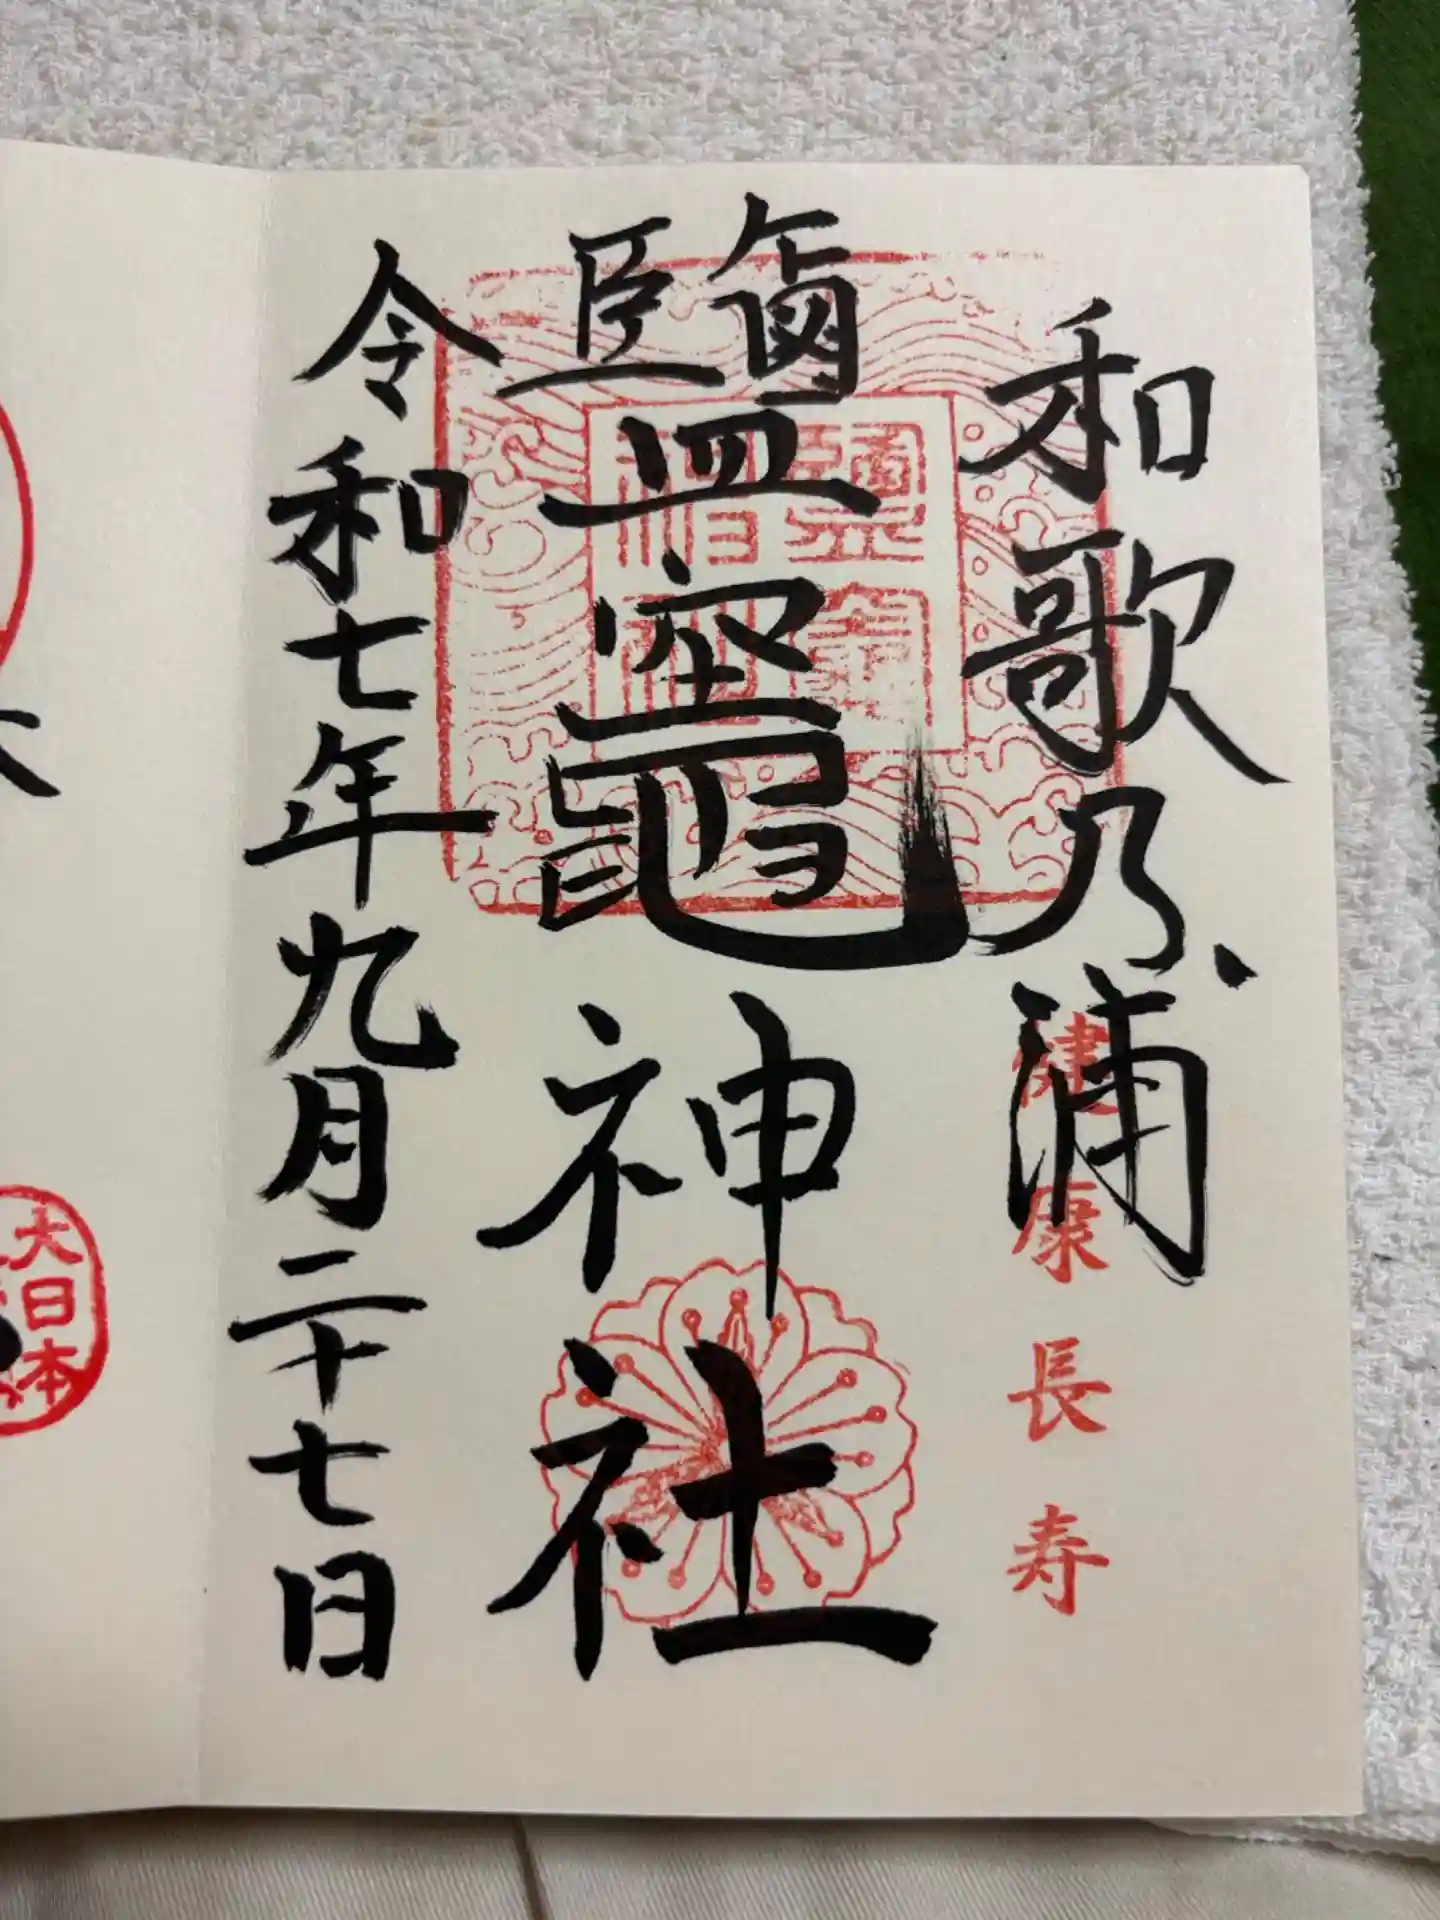 和歌乃浦
健康長寿
鹽竈神社
鹽竈神社
令和七年九月二十七日
大日本